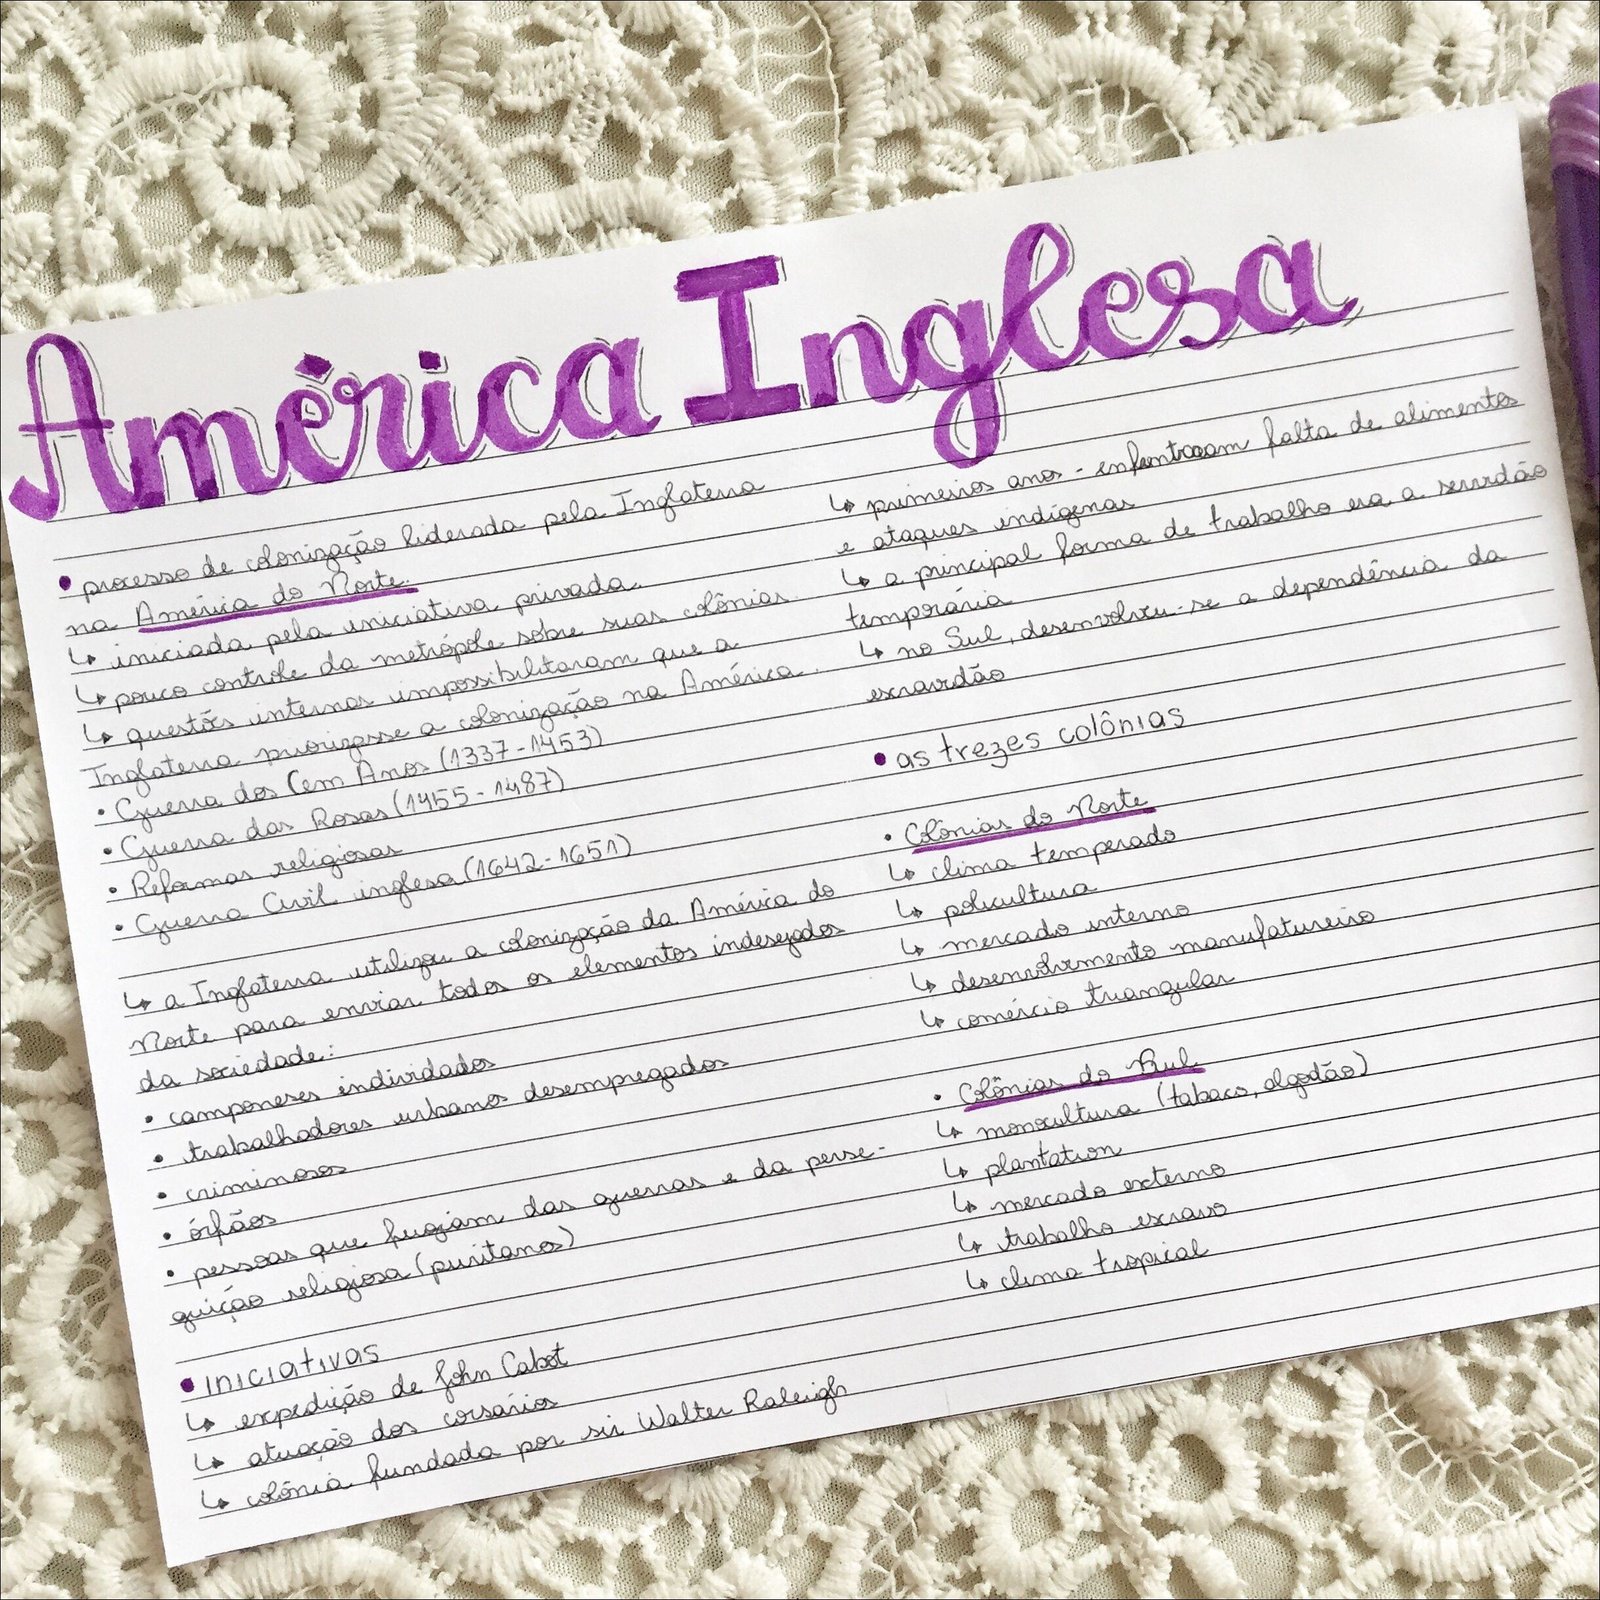 América Inglesa
• processo de colonização liderada pela Inglaterra
na América do Norte.
↳ iniciada pela iniciativa privada.
↳ pouco controle da metrópole sobre suas colônias
↳ questões internas impossibilitaram que a
Inglaterra priorizasse a colonização na América.
• Guerra dos Cem Anos (1337-1453)
• Guerra das Rosas (1455-1487)
• Reformas religiosas
• Guerra Civil inglesa (1642-1651)
↳ a Inglaterra utilizou a colonização da América do
Norte para enviar todos os elementos indesejados
da sociedade:
• camponeses endividados
• trabalhadores urbanos desempregados
• criminosos
• órfãos
• pessoas que fugiam das guerras e da perse-
guição religiosa (puritanos)
• iniciativas
↳ expedição de John Cabot
↳ atuação dos corsários
↳ colônia fundada por sir Walter Raleigh
↳ primeiros anos - enfrentaram falta de alimentos
e ataques indígenas
↳ a principal forma de trabalho era a servidão
temporária
↳ no Sul, desenvolveu-se a dependência da
escravidão
• as trezes colônias
• Colônias do Norte
↳ clima temperado
↳ policultura
↳ mercado interno
↳ desenvolvimento manufatureiro
↳ comércio triangular
• Colônias do Sul
↳ monocultura (tabaco, algodão)
↳ plantation
↳ mercado externo
↳ trabalho escravo
↳ clima tropical